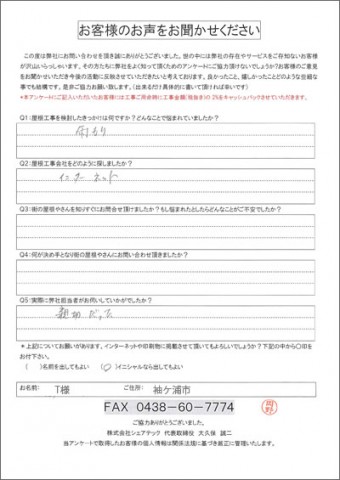 お客様のお声をお聞かせください
この度は弊社にお問い合わせを頂き誠にありがとうございました。世の中には弊社の存在やサービスをご存知ないお客様
が沢山いらっしゃいます。その方たちに弊社をよく知って頂くためのアンケートにご協力頂けないでしょうか?お客様のご意見
をお聞かせいただき今後の活動に反映させていただきたいと考えております。良かったこと、嬉しかったことどのような些細な
事でも結構です。是非ご協力お願い致します。(出来るだけ具体的に書いて頂ければ幸いです)
*本アンケートにご記入いただいたお客様には工事ご用命時に工事金額(税抜き)の2%をキャッシュバックさせていただきます。
Q1:屋根工事を検討したきっかけは何ですか?どんなことで悩まれていましたか?
雨もり
Q2:屋根工事会社をどのように探しましたか?
インターネット
Q3:街の屋根やさんを知りすぐにお問合せ頂けましたか?もし悩まれたとしたらどんなことがご不安でしたか?
Q4:何が決め手となり街の屋根やさんにお問い合わせ頂きましたか?
Q5:実際に弊社担当者がお伺いしていかがでしたか?
親切だった
* 上記についてお願いがあります。インターネットや印刷物に掲載させて頂いてもよろしいでしょうか?下記の中から〇印を
お付下さい。
( )名前を出してもよい (〇)イニシャルなら出してもよい
お名前: T様 ご住所: 袖ケ浦市
FAX 0438-60-7774
ご協力ありがとうございました。
株式会社シェアテック 代表取締役 大久保 誠二
当アンケートで取得したお客様の個人情報は関係法規に基づき厳正に管理いたします。